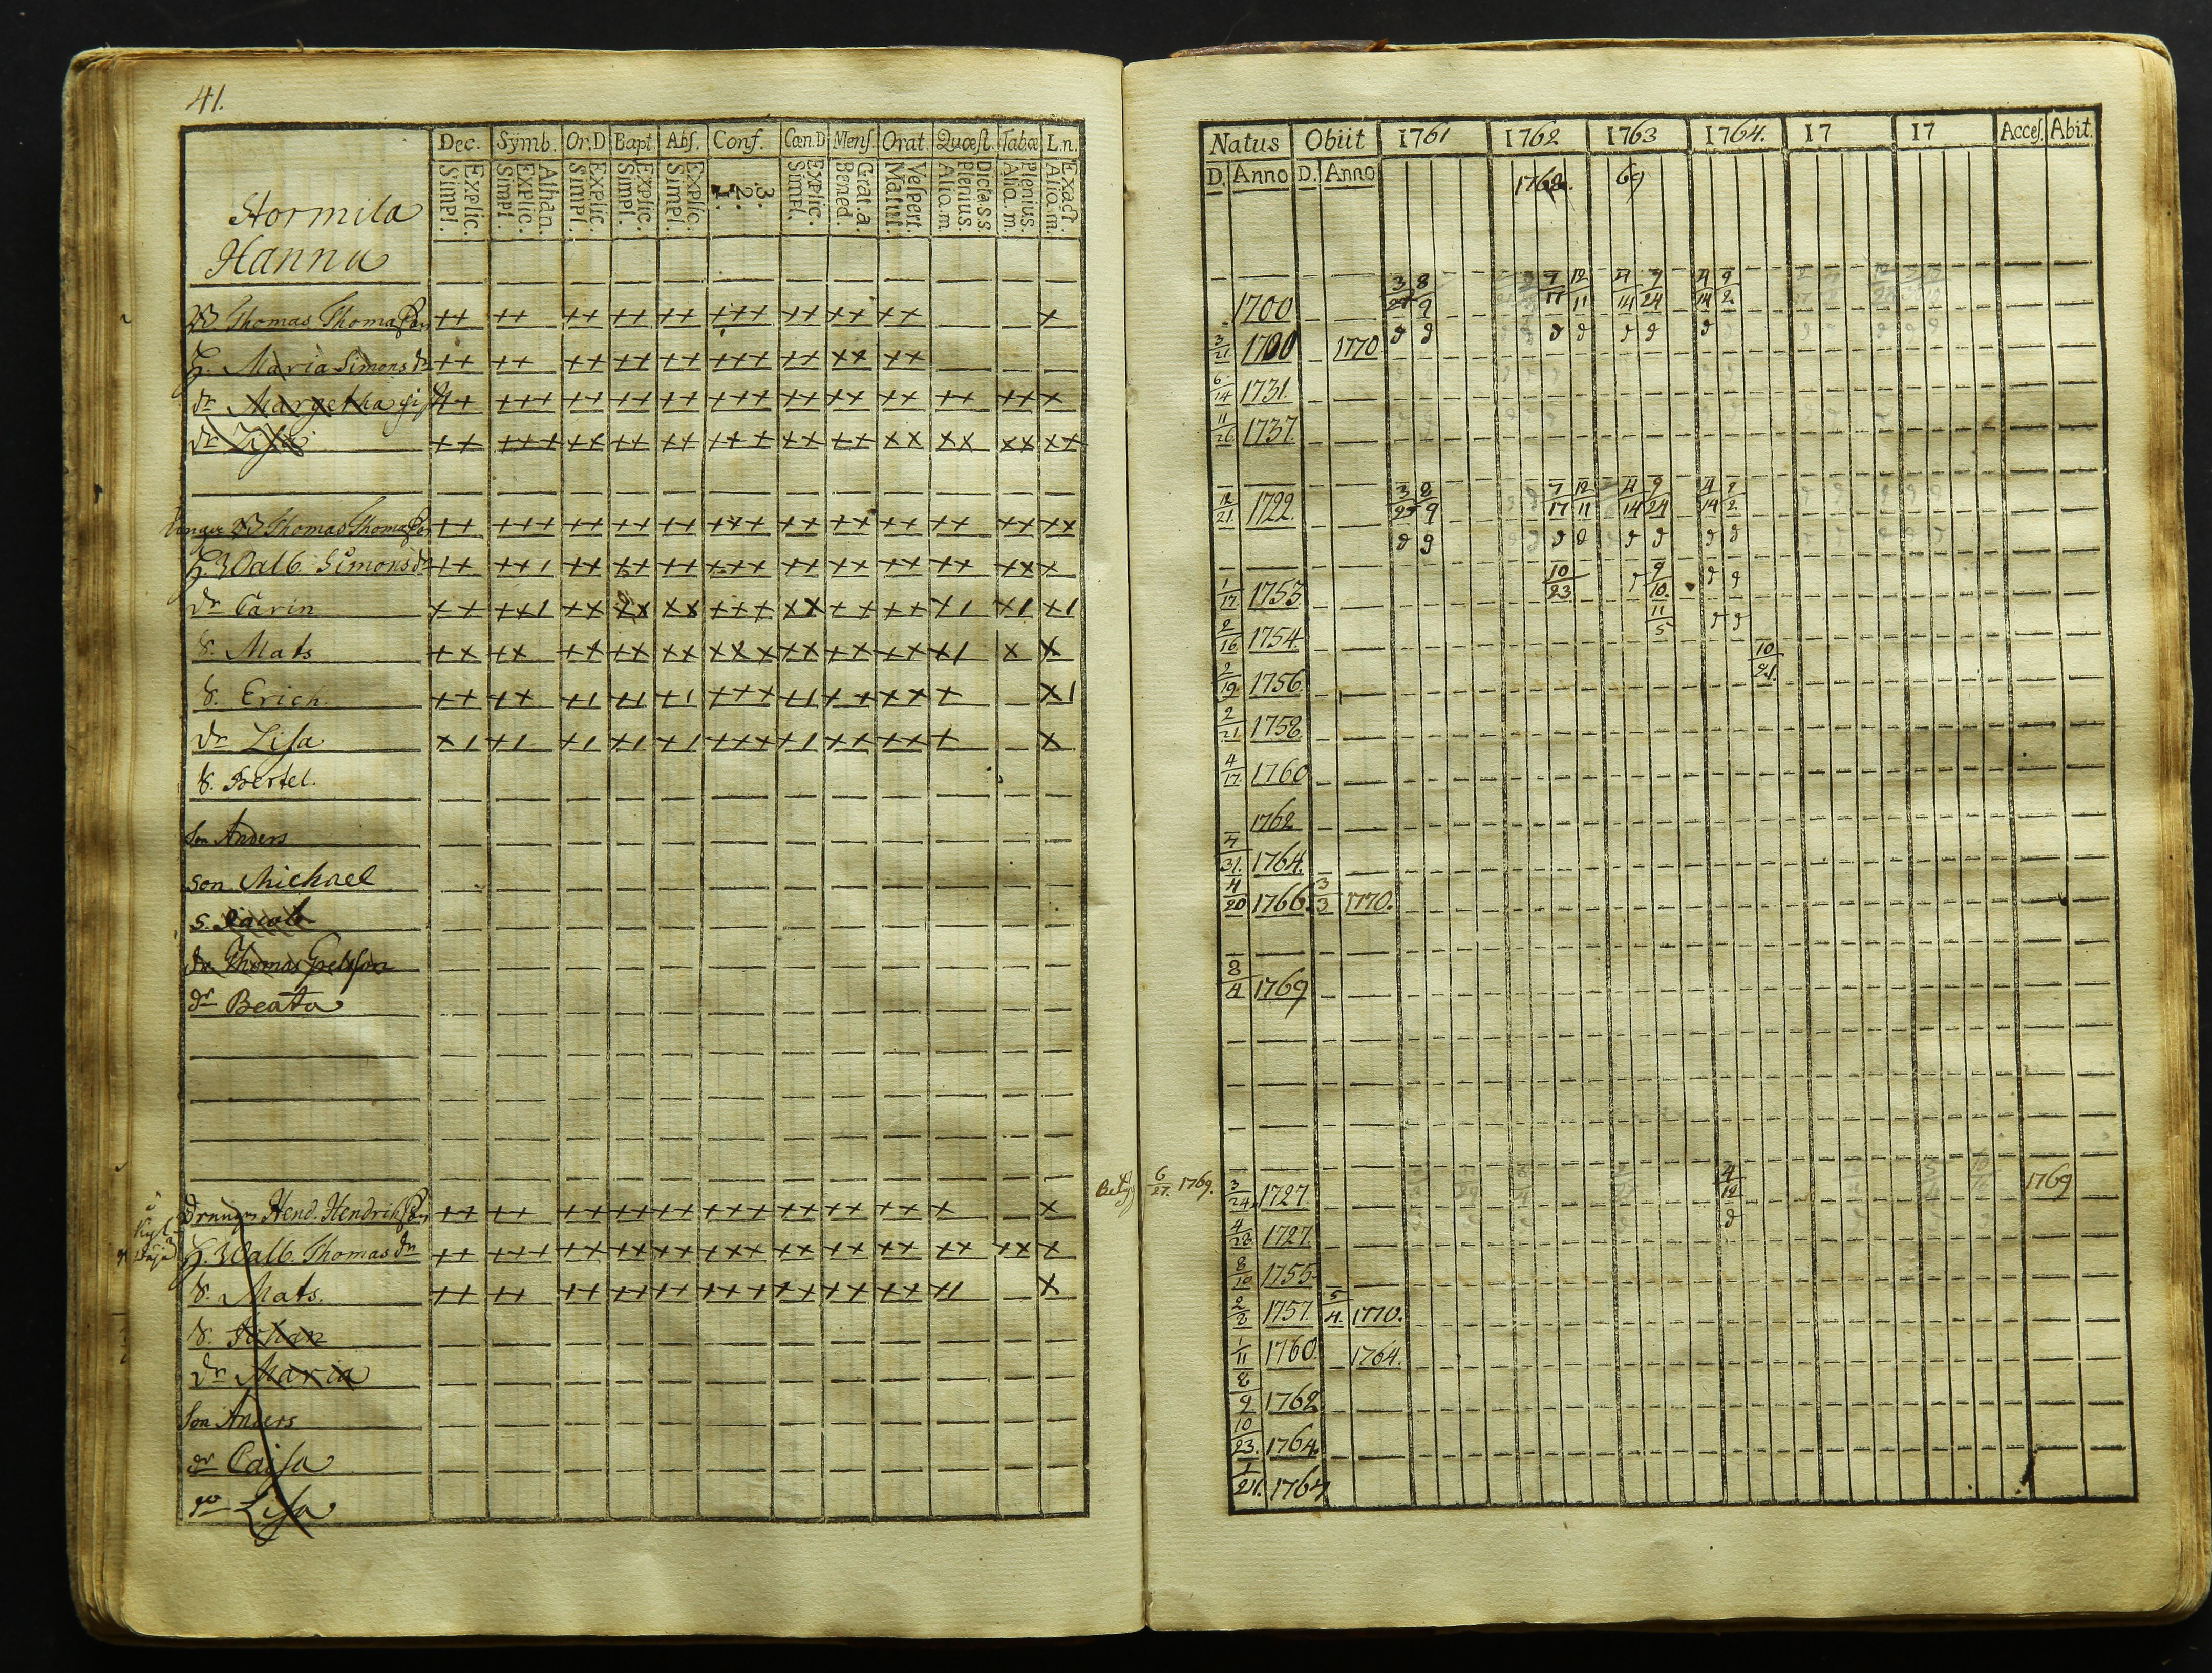 41.
Dec. Symb. Or.D Bapt. Abs. Conf. Cœn.D Mens. Orat. Quæst. Tab.œ L.n.
Explic. Simpl. Athan. Explic. Simpl. Explic. Simpl. Explic. Simpl. Explic. Simpl. 3. 2. 1. Explic. Simpl. Grat.a. Bened. Vespert. Matut. Dicta.s.s. Plenius. Alio.m. Plenius. Alio.m. Exact. Alio.m.
Hormila
Hannu
Thomas Thomasson ++ ++ ++ ++ ++ +++ ++ ++ ++ x
H. Maria Simonsdr ++ ++ ++ ++ ++ +++ ++ xx ++
dr Margetha ++ +++ ++ ++ ++ +++ ++ ++ ++ ++ +++ x
dr Lisa ++ ++++ ++ ++ ++ +++ ++ ++ xx xx xx xx
Thomas Thomasson ++ +++ ++ ++ ++ +++ ++ ++ ++ ++ ++ xx
H. Walb. Simonsdr ++ ++1 ++ ++ ++ +++ ++ ++ ++ ++ ++ x
dr Carin ++ ++1 ++ xx xx +++ xx ++ +++ +1 +1 +1
S. Mats ++ ++ ++ ++ ++ +++ ++ ++ ++ +1 x x
S. Erich. ++ ++ +1 +1 +1 +++ +1 ++ ++ + x1
dr Lisa +1 +1 +1 +1 +1 +++ +1 ++ ++ + x
S. Bertel.
Son Anders
Son Michael
S. Jacob
Thomas
dr Beata
Hend. Hendrichsson ++ ++ ++ ++ ++ +++ ++ ++ ++ + x
H. Walb. Thomasdr ++ +++ ++ ++ ++ +++ ++ ++ ++ ++ ++ x
S. Mats. ++ ++ ++ ++ ++ +++ ++ ++ ++ +1 x
S. Johan
dr Maria
Son Anders
dr Caisa
dr Lisa
Natus Obiit 1761 1762 1763 1764. 17 17 Acces. Abit.
D. Anno D. Anno 1768. 69
1700 3/29 8/9 7/17 12/11 4/14 9/24 4/14 9/2
3/21 1700 1770
6/14 1731.
11/26 1737
12/21 1722 3/29 8/9 7/17 12/11 4/14 9/24 4/14 9/2
1/17 1753 10/23 9/10.
2/16 1754. 11/5
2/19 1756 10/21.
2/21 1758
4/17 1760
1762
7/31. 1764.
4/20 1766. 3/3 1770.
8/4 1769
6/27. 1769.
3/24 1727 4/12 1769
4/28 1727.
8/10 1755
2/8 1757. 5/4. 1770.
1/11 1760 1764.
8/9 1762
10/23. 1764.
1/21. 1767